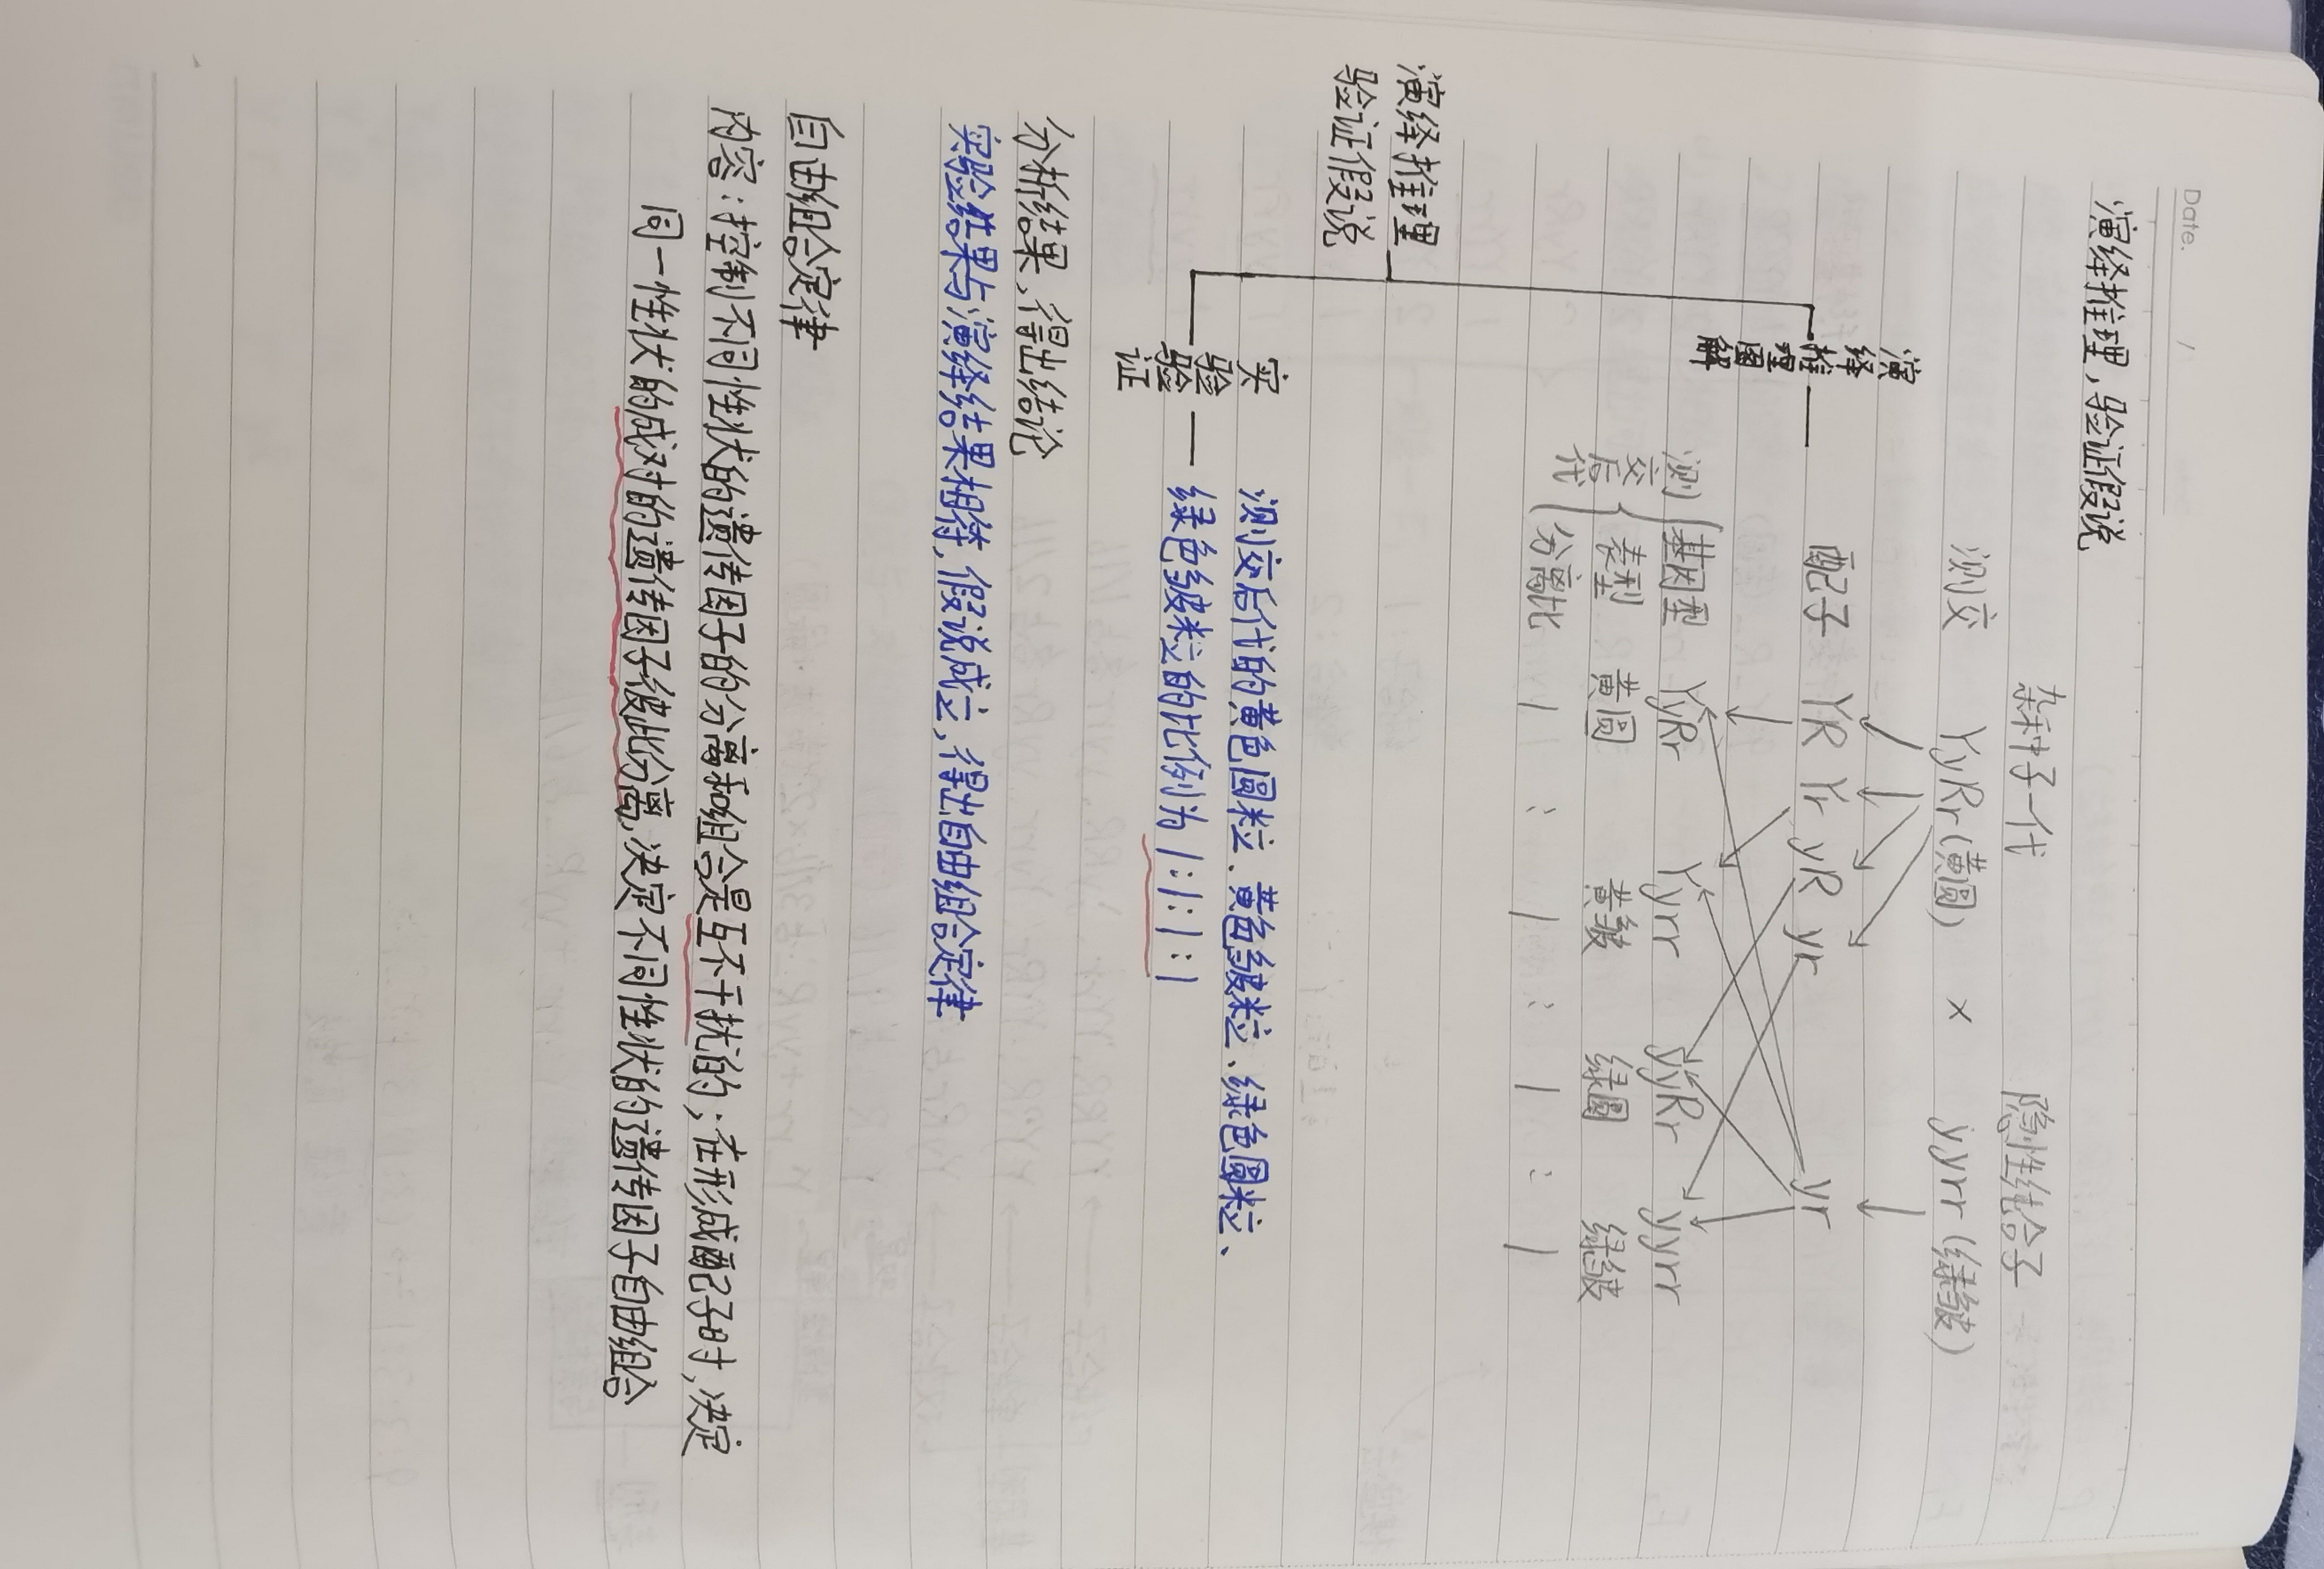 Date. /
演绎推理,验证假说
杂种子一代 隐性纯合子
测交 YyRr(黄圆) × yyrr(绿皱)
配子 YR Yr yR yr yr
演绎推理图解
测交后代
基因型 YyRr Yyrr yyRr yyrr
表型 黄圆 黄皱 绿圆 绿皱
分离比 1 : 1 : 1 : 1
演绎推理
验证假说
实验验证
测交后代的黄色圆粒、黄色皱粒、绿色圆粒、
绿色皱粒的比例为 1:1:1:1
分析结果,得出结论
实验结果与演绎结果相符,假说成立,得出自由组合定律
自由组合定律
内容:控制不同性状的遗传因子的分离和组合是互不干扰的;在形成配子时,决定
同一性状的成对的遗传因子彼此分离,决定不同性状的遗传因子自由组合